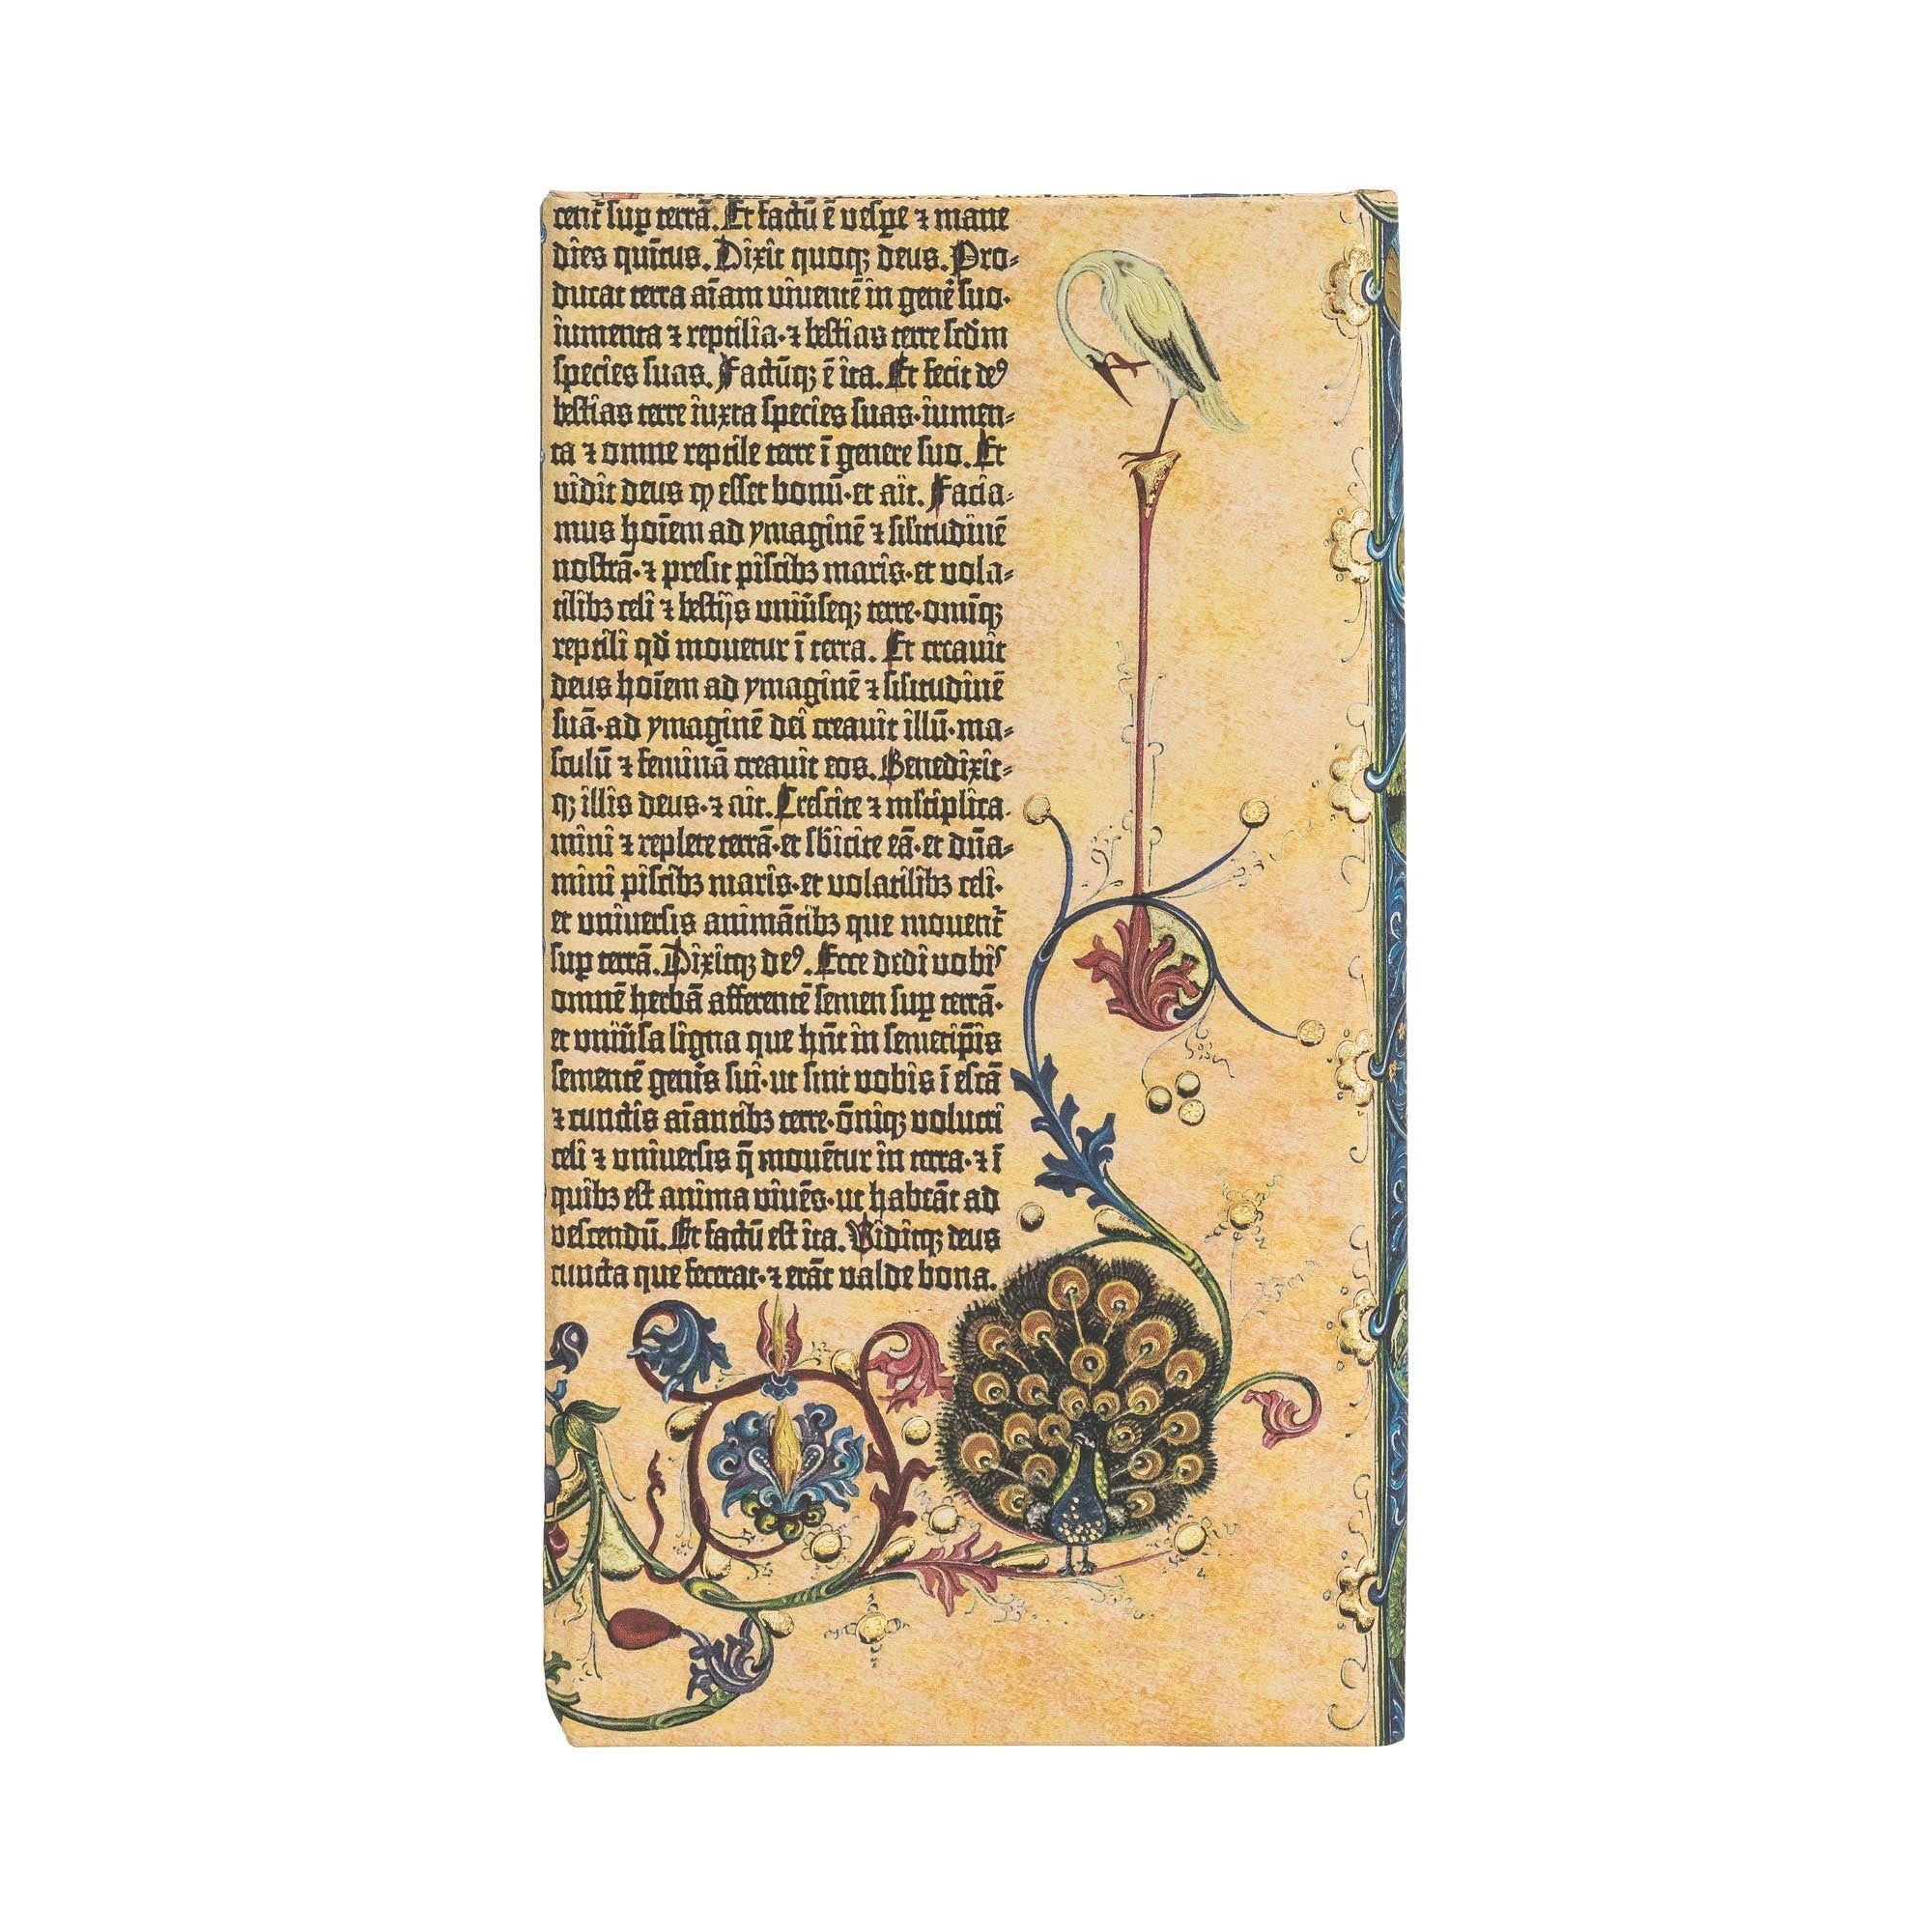 cent̄ sup̱ terrā. Et factū ē vesp̱e ⁊ mane
dies quītus. Dixit quoqꝫ deus. Pro⸗
ducat terra aīam viventē in genē suo·
iumenta ⁊ reptilia·⁊ bestias terre scd̄m
species suas. Factūqꝫ ē ita. Et fecit deꝰ
bestias terre iuxta species suas·iumen⸗
ta ⁊ omne reptile terre ī genere suo. Et
vidit deus ꝙ esset bonū·et ait. Facia⸗
mus hoīem ad ymaginē ⁊ sil̄itudinē
nostrā·⁊ presit piscibꝫ maris·et vola⸗
tilibꝫ celi ⁊ bestijs univ̄seqꝫ terre·omīqꝫ
reptili qd̄ movetur ī terra. Et creavit
deus hoīem ad ymaginē ⁊ sil̄itudinē
suā·ad ymaginē dei creavit illū·ma⸗
sculū ⁊ feminā creavit eos. Benedixit⸗
qꝫ illis deus·⁊ ait. Crescite ⁊ ml̄tiplica
mini ⁊ replete terrā·et sb̄icite eā·et dn̄a⸗
mini piscibꝫ maris·et volatilibꝫ celi·
et universis animātibꝫ que movent̄
sup̱ terrā. Dixitqꝫ deꝰ. Ecce dedi vobis
omnē herbā afferentē semen sup̱ terrā·
et univ̄sa ligna que hn̄t in semetip̄is
sementē genīs sui·ut sint vobis ī escā
⁊ cunctis aīantibꝫ terre·ōniqꝫ volucri
celi ⁊ universis q̄ movētur in terra·⁊ ī
quibꝫ est anima vivēs·ut habeāt ad
vescendū. Et factū est ita. Viditqꝫ deus
cuncta que fecerat·⁊ erāt valde bona.